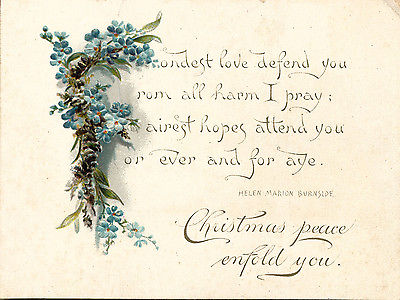 Fondest love defend you
rom all harm I pray;
airest hopes attend you
or ever and for aye.
HELEN MARION BURNSIDE.
Christmas peace
enfold you.